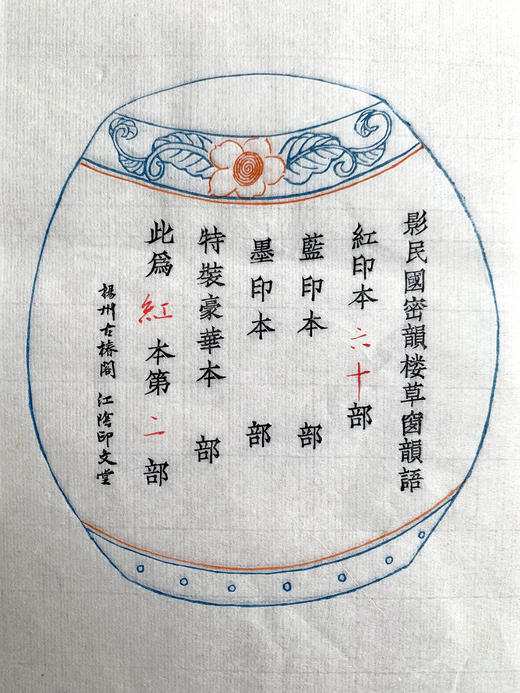 影民國密韻楼草窗韻語
紅印本 六十部
藍印本 部
墨印本 部
特裝豪華本 部
此爲 紅 本第 二 部
揚州古椿閣 江陰印文堂